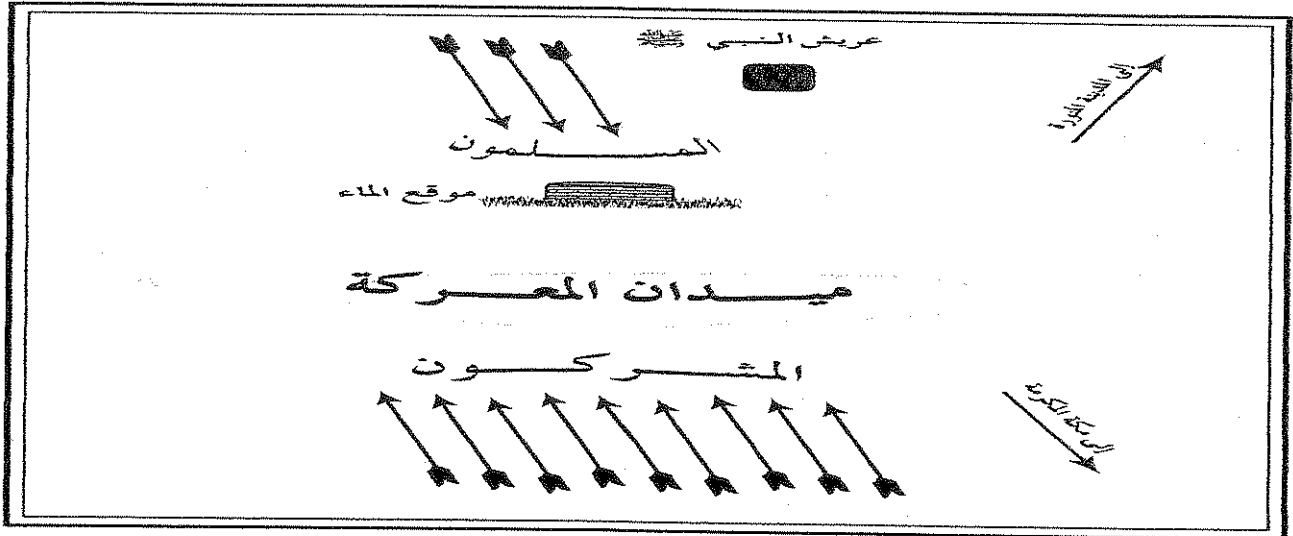 عريش النبي ﷺ
إلى المدينة المنورة
المسلمون
موقع الماء
ميدان المعركة
المشركون
إلى مكة المكرمة